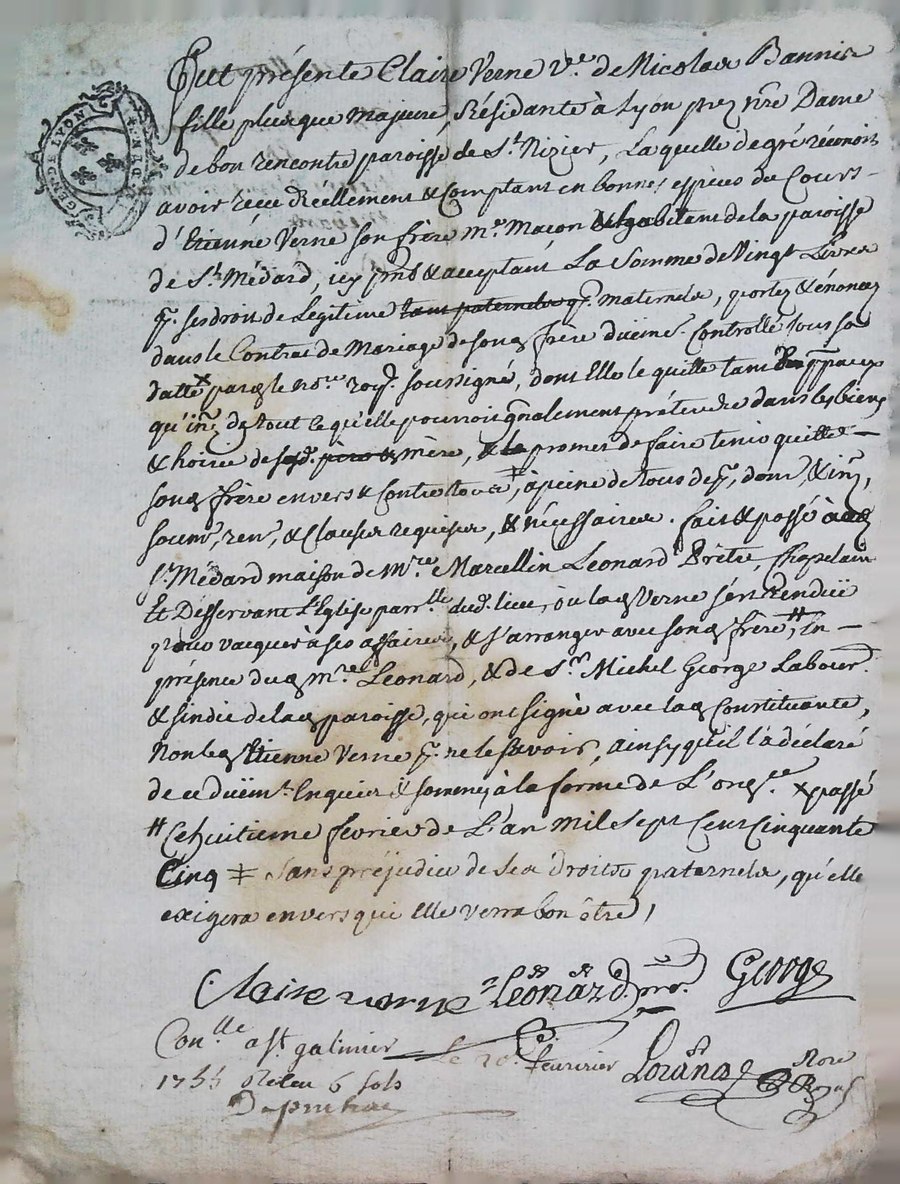 GEN. DE LYON
Fut présente Claire Verne v.e de Nicolas Bannie
fille plus que Majeure, Résidante à Lyon prez nre Dame
de bon rencontre paroisse de St. Nizier, Laquelle de gré réconois
avoir réçu Réellement & Comptant en bonnes espèces du Cours
d'Etienne Verne son frère Me. Macon & habitant de la paroisse
de St. Médard, icy pnt & acceptant La Somme de Vingt Livres
pr. ses droit de Légitime tant paternels q. maternels, portez & énoncez
dans le Contrat de Mariage de son d frère düemt. Controllé sous sa
datte x par d le nore. roy. soussigné, dont Elle le quitte tant
qu' de tout ce qu'elle pourroit gnalement prétendre dans les biens
& hoirie de père & mère, & promet de faire tenir quitte
son d frère envers & Contre tous, à peine de tous dep., dom, & in,
soum, ren, & Clauses requises, & nécessaires. fait & passé à
St. Médard maison de Mre. Marcellin Leonard Prêtre, Chapelain
Et Désservant L'Eglise parr.lle dud. lieu, où lad Verne s'est Rendüe
pour vacquer à ses affaires, & s'arranger avec son d frère, # En
présence dud mre. Leonard, & de Sr. Michel George Labour.
& sindic de lad paroisse, qui ont signé avec lad Constituante,
Non led Etienne Verne pr. ne le sçavoir, ainsy qu'il l'a déclaré
de ce düemt. Enquis & sommé à la forme de L'ord.ce x passé
# Ce huitieme février de L'an Mil sept Cent Cinquante
Cinq ‡ Sans préjudice de ses droits paternels, qu'elle
exigera envers qui elle verra bon être /
Claire verne Leonard ptre. George
Con.lle a St galmier le 20e. feuvrier
1755 Reçeu 6 sols
Nore
Roy